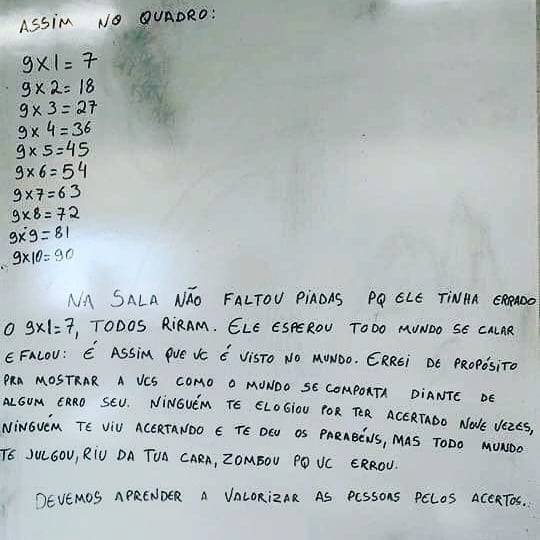 ASSIM NO QUADRO:
9X1=7
9X2=18
9X3=27
9X4=36
9X5=45
9X6=54
9X7=63
9X8=72
9X9=81
9X10=90
NA SALA NÃO FALTOU PIADAS PQ ELE TINHA ERRADO
O 9X1=7, TODOS RIRAM. ELE ESPEROU TODO MUNDO SE CALAR
E FALOU: É ASSIM QUE VC É VISTO NO MUNDO. ERREI DE PROPÓSITO
PRA MOSTRAR A VCS COMO O MUNDO SE COMPORTA DIANTE DE
ALGUM ERRO SEU. NINGUÉM TE ELOGIOU POR TER ACERTADO NOVE VEZES,
NINGUÉM TE VIU ACERTANDO E TE DEU OS PARABÉNS, MAS TODO MUNDO
TE JULGOU, RIU DA TUA CARA, ZOMBOU PQ VC ERROU.
DEVEMOS APRENDER A VALORIZAR AS PESSOAS PELOS ACERTOS.